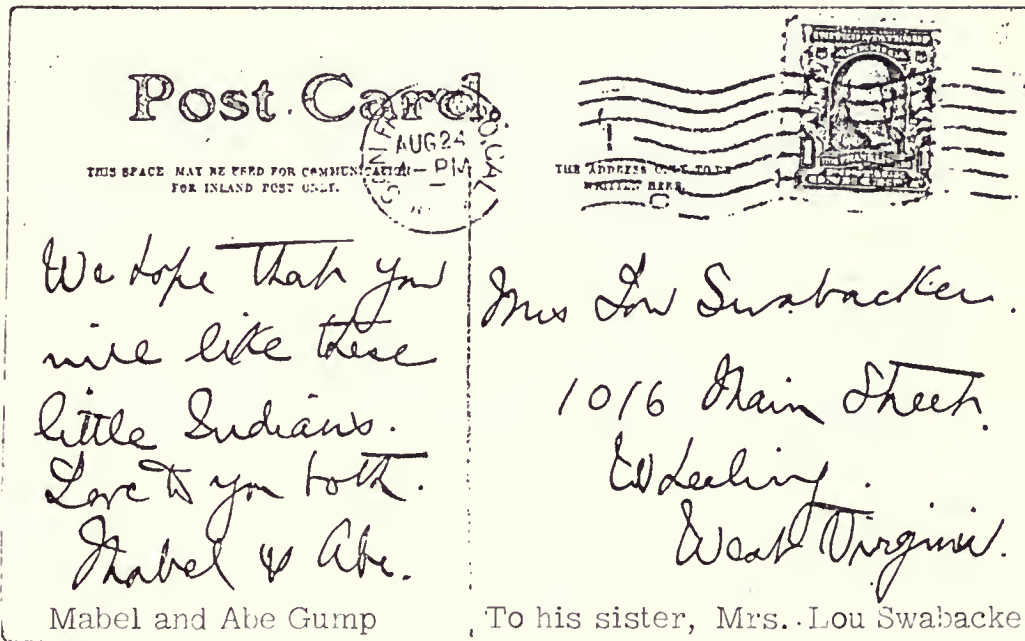 Post Card
AUG 24
-PM
CAL
THIS SPACE MAY BE USED FOR COMMUNICATION
FOR INLAND POST ONLY.
THE ADDRESS ONLY TO BE
WRITTEN HERE.
We hope that you
will like these
little Indians.
Love to you both.
Mabel & Abe.
Mrs Lou Swabacker.
1016 Main Street.
Wheeling.
West Virginia.
Mabel and Abe Gump
To his sister, Mrs. Lou Swabacke